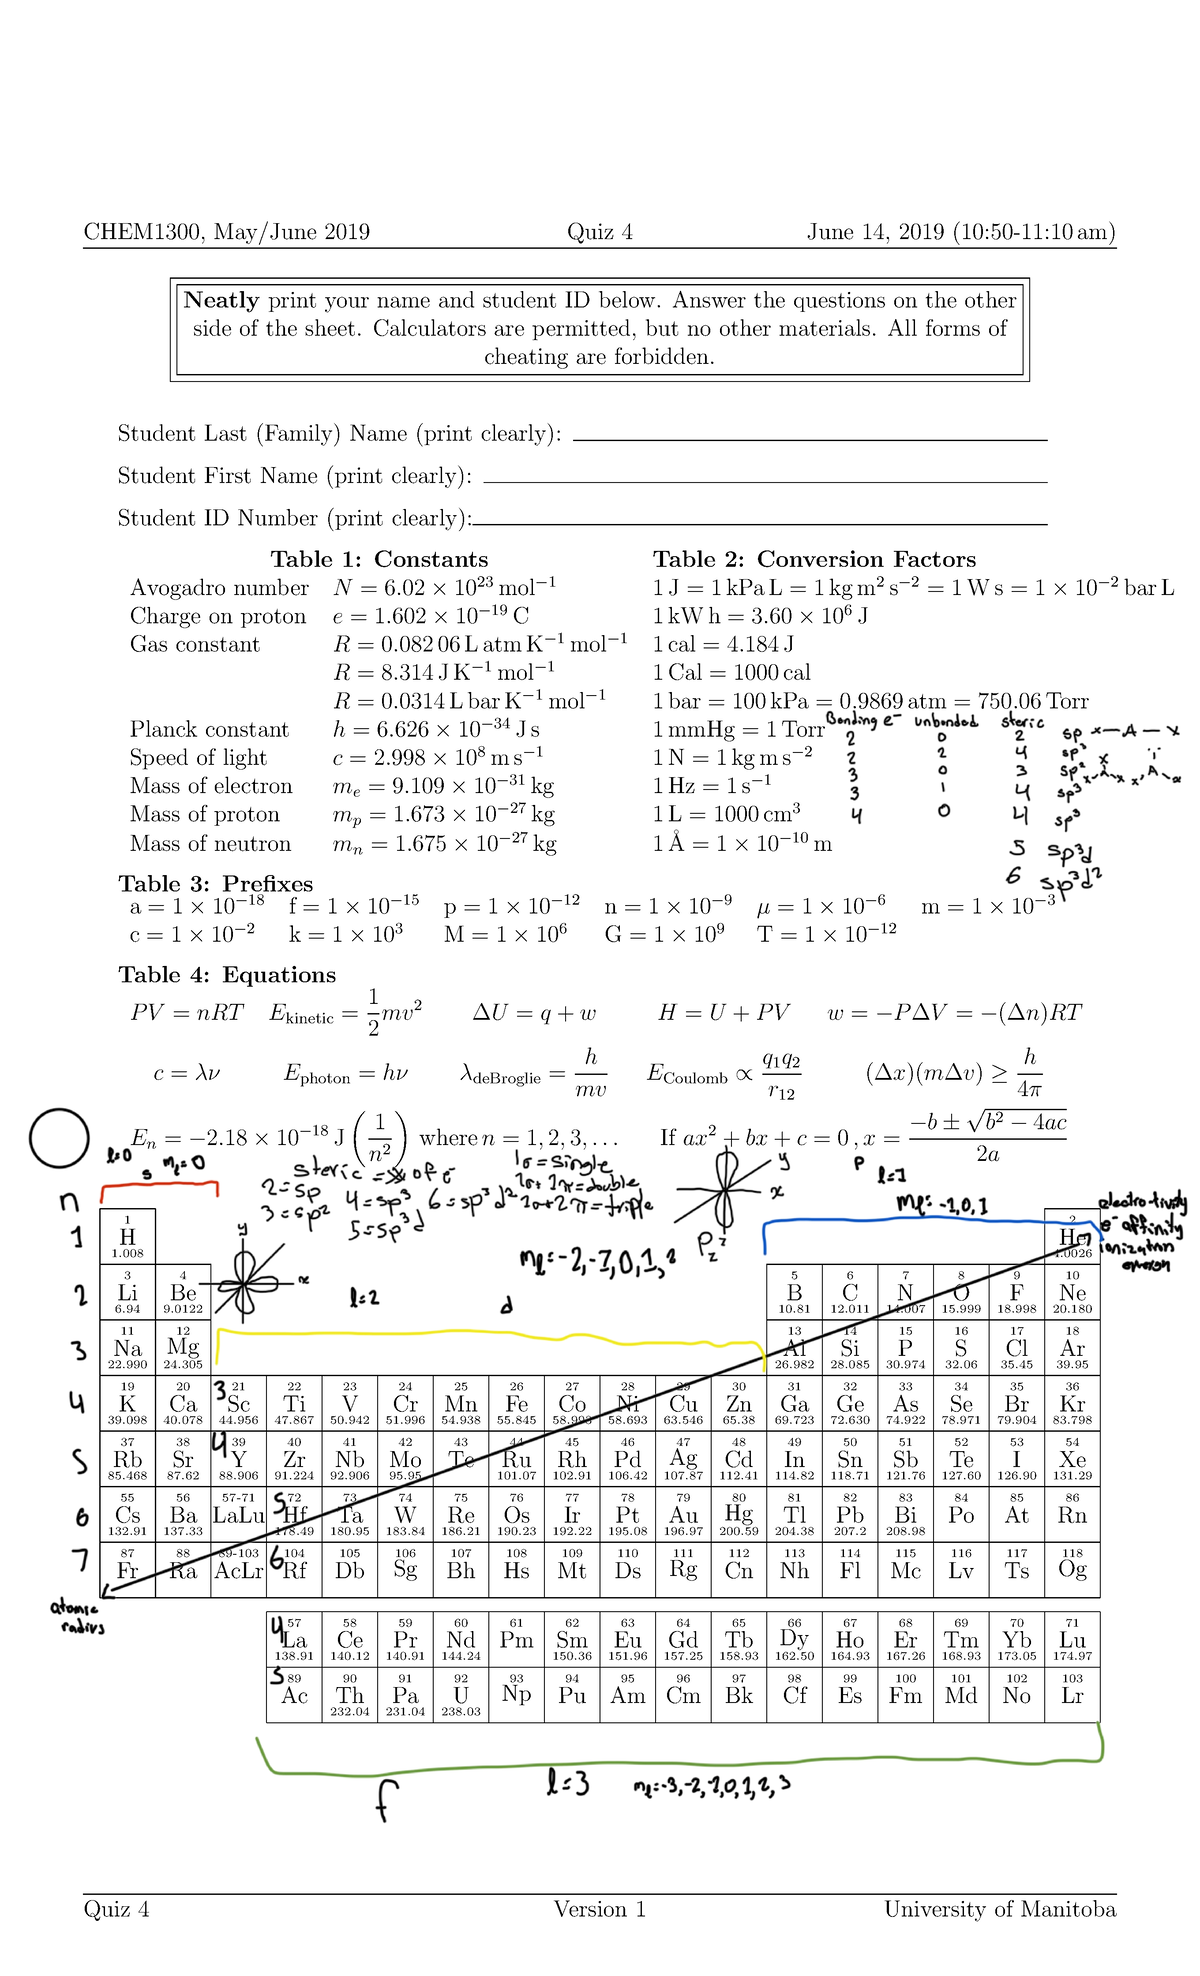 CHEM1300, May/June 2019 Quiz 4 June 14, 2019 (10:50-11:10 am)
Neatly print your name and student ID below. Answer the questions on the other
side of the sheet. Calculators are permitted, but no other materials. All forms of
cheating are forbidden.
Student Last (Family) Name (print clearly):
Student First Name (print clearly):
Student ID Number (print clearly):
Table 1: Constants
Avogadro number N = 6.02 × 10²³ mol⁻¹
Charge on proton e = 1.602 × 10⁻¹⁹ C
Gas constant R = 0.082 06 L atm K⁻¹ mol⁻¹
R = 8.314 J K⁻¹ mol⁻¹
R = 0.0314 L bar K⁻¹ mol⁻¹
Planck constant h = 6.626 × 10⁻³⁴ J s
Speed of light c = 2.998 × 10⁸ m s⁻¹
Mass of electron mₑ = 9.109 × 10⁻³¹ kg
Mass of proton mₚ = 1.673 × 10⁻²⁷ kg
Mass of neutron mₙ = 1.675 × 10⁻²⁷ kg
Table 2: Conversion Factors
1 J = 1 kPa L = 1 kg m² s⁻² = 1 W s = 1 × 10⁻² bar L
1 kW h = 3.60 × 10⁶ J
1 cal = 4.184 J
1 Cal = 1000 cal
1 bar = 100 kPa = 0.9869 atm = 750.06 Torr
1 mmHg = 1 Torr
1 N = 1 kg m s⁻²
1 Hz = 1 s⁻¹
1 L = 1000 cm³
1 Å = 1 × 10⁻¹⁰ m
Bonding e⁻ unbonded steric
2 0 2 sp x—A—x
2 2 4 sp³
3 0 3 sp²
3 1 4 sp³
4 0 4 sp³
5 sp³d
6 sp³d²
Table 3: Prefixes
a = 1 × 10⁻¹⁸ f = 1 × 10⁻¹⁵ p = 1 × 10⁻¹² n = 1 × 10⁻⁹ μ = 1 × 10⁻⁶ m = 1 × 10⁻³
c = 1 × 10⁻² k = 1 × 10³ M = 1 × 10⁶ G = 1 × 10⁹ T = 1 × 10⁻¹²
Table 4: Equations
PV = nRT E_kinetic = 1/2 mv² ΔU = q + w H = U + PV w = −PΔV = −(Δn)RT
c = λν E_photon = hν λ_deBroglie = h/mv E_Coulomb ∝ q₁q₂/r₁₂ (Δx)(mΔv) ≥ h/4π
Eₙ = −2.18 × 10⁻¹⁸ J (1/n²) where n = 1, 2, 3, … If ax² + bx + c = 0 , x = (−b ± √(b² − 4ac))/2a
l=0 s mₗ=0
steric = # of e⁻
2=sp 4=sp³ 6=sp³d²
3=sp² 5=sp³d
1σ=single
1σ+1π=double
1σ+2π=triple
y
x
P_z²
p l=1
mₗ=-1,0,1
electro-tivity
e⁻ affinity
ionization
y
x
l=2 d
mₗ=-2,-1,0,1,2
n
1 2 3 4 5 6 7
1 H 1.008 2 He 4.0026
3 Li 6.94 4 Be 9.0122 5 B 10.81 6 C 12.011 7 N 14.007 8 O 15.999 9 F 18.998 10 Ne 20.180
11 Na 22.990 12 Mg 24.305 13 Al 26.982 14 Si 28.085 15 P 30.974 16 S 32.06 17 Cl 35.45 18 Ar 39.95
19 K 39.098 20 Ca 40.078 3 21 Sc 44.956 22 Ti 47.867 23 V 50.942 24 Cr 51.996 25 Mn 54.938 26 Fe 55.845 27 Co 58.993 28 Ni 58.693 29 Cu 63.546 30 Zn 65.38 31 Ga 69.723 32 Ge 72.630 33 As 74.922 34 Se 78.971 35 Br 79.904 36 Kr 83.798
37 Rb 85.468 38 Sr 87.62 4 39 Y 88.906 40 Zr 91.224 41 Nb 92.906 42 Mo 95.95 43 Tc 44 Ru 101.07 45 Rh 102.91 46 Pd 106.42 47 Ag 107.87 48 Cd 112.41 49 In 114.82 50 Sn 118.71 51 Sb 121.76 52 Te 127.60 53 I 126.90 54 Xe 131.29
55 Cs 132.91 56 Ba 137.33 57-71 LaLu 5 72 Hf 178.49 73 Ta 180.95 74 W 183.84 75 Re 186.21 76 Os 190.23 77 Ir 192.22 78 Pt 195.08 79 Au 196.97 80 Hg 200.59 81 Tl 204.38 82 Pb 207.2 83 Bi 208.98 84 Po 85 At 86 Rn
87 Fr 88 Ra 89-103 AcLr 6 104 Rf 105 Db 106 Sg 107 Bh 108 Hs 109 Mt 110 Ds 111 Rg 112 Cn 113 Nh 114 Fl 115 Mc 116 Lv 117 Ts 118 Og
atomic
radius
4 57 La 138.91 58 Ce 140.12 59 Pr 140.91 60 Nd 144.24 61 Pm 62 Sm 150.36 63 Eu 151.96 64 Gd 157.25 65 Tb 158.93 66 Dy 162.50 67 Ho 164.93 68 Er 167.26 69 Tm 168.93 70 Yb 173.05 71 Lu 174.97
5 89 Ac 90 Th 232.04 91 Pa 231.04 92 U 238.03 93 Np 94 Pu 95 Am 96 Cm 97 Bk 98 Cf 99 Es 100 Fm 101 Md 102 No 103 Lr
f l=3 mₗ=-3,-2,-1,0,1,2,3
Quiz 4 Version 1 University of Manitoba